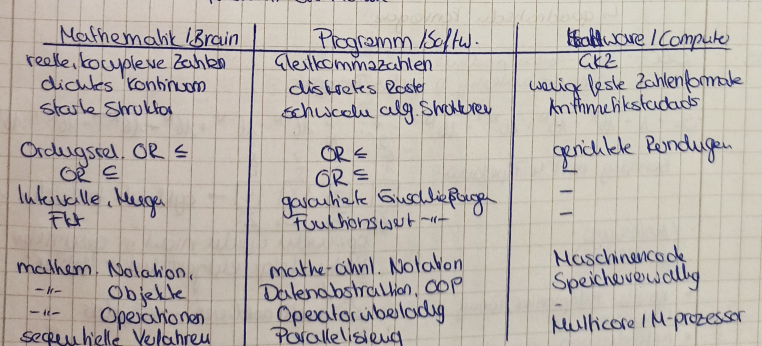 Mathematik / Brain | Programm / Softw. | Hardware / Computer
reelle, komplexe Zahlen | Gleitkommazahlen | GKZ
dichtes Kontinuum | diskretes Raster | wenige feste Zahlenformate
starke Struktur | schwache alg. Strukturen | Arithmetikstandards
Ordnugsrel. OR ≤ | OR ≤ | gerichtete Rundugen
OR ⊆ | OR ⊆ | –
Intervalle, Menge | garantierte Einschließungen | –
Fkt | Funktionswert -"- | –
mathem. Notation, | mathe-ähnl. Notation | Maschinencode
-"- Objekte | Datenabstraktion, OOP | Speicherverwaltg
-"- Operationen | Operatorüberladg | -
sequentielle Verfahren | Parallelisierug | Multicore / M-prozessor